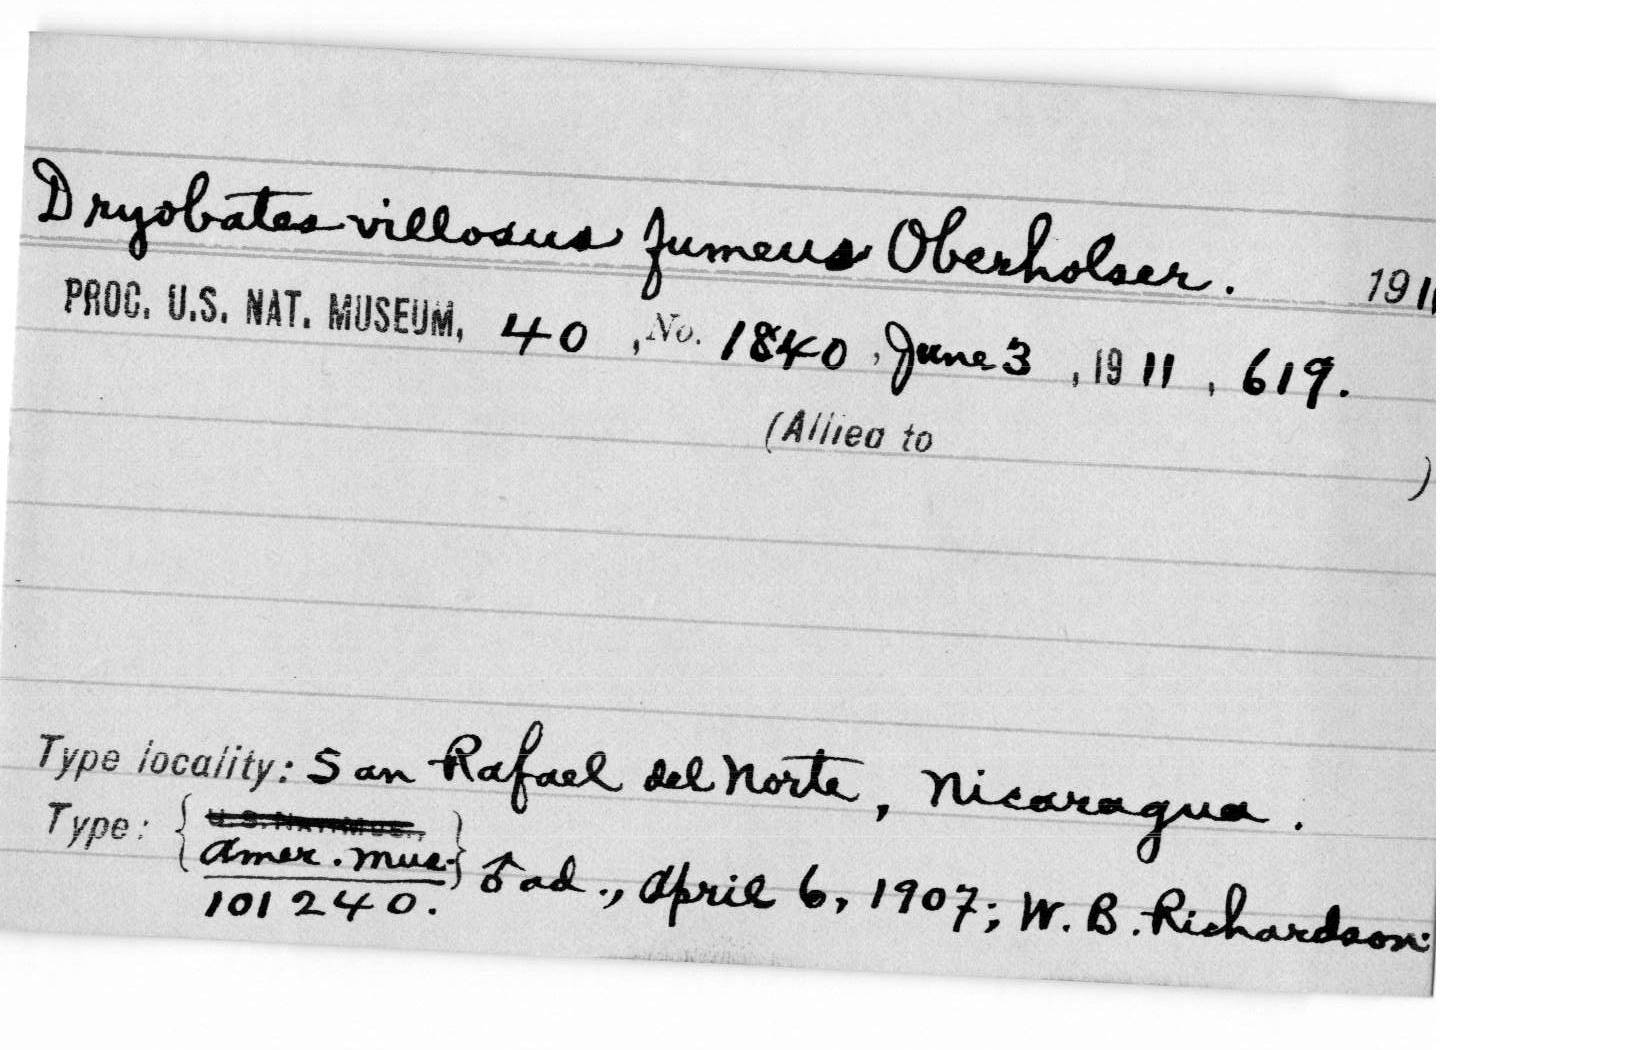 Dryobates villosus fumeus Oberholser. 1911
PROC. U.S. NAT. MUSEUM, 40, No. 1840, June 3, 1911, 619.
(Allied to )
Type locality: San Rafael del Norte, Nicaragua.
Type: { U.S. Nat. Mus.,
Amer. Mus. } ♂ ad., April 6, 1907; W. B. Richardson.
101240.